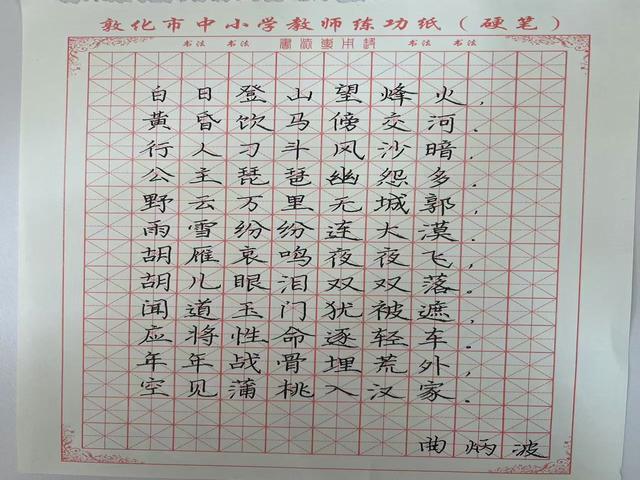 敦化市中小学教师练功纸（硬笔）
书法 书法 书法 书法
白日登山望烽火，
黄昏饮马傍交河．
行人刁斗风沙暗，
公主琵琶幽怨多．
野云万里无城郭，
雨雪纷纷连大漠．
胡雁哀鸣夜夜飞，
胡儿眼泪双双落．
闻道玉门犹被遮，
应将性命逐轻车．
年年战骨埋荒外，
空见蒲桃入汉家．
曲炳波